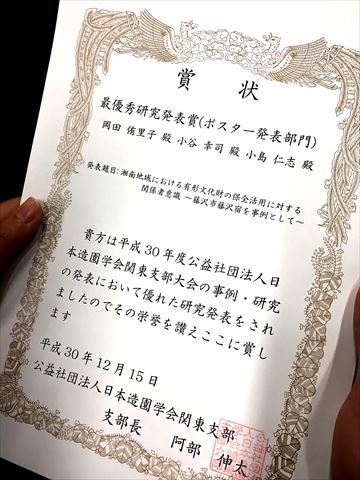 賞状
最優秀研究発表賞(ポスター発表部門)
岡田 侑里子 殿 小谷 幸司 殿 小島 仁志 殿
発表題目: 湘南地域における有形文化財の保全活用に対する
関係者意識 ～藤沢市藤沢宿を事例として～
貴方は平成30年度公益社団法人日
本造園学会関東支部大会の事例・研究
の発表において優れた研究発表をされ
ましたのでその栄誉を讃えここに賞し
ます
平成30年12月15日
公益社団法人日本造園学会関東支部
支部長 阿部 伸太